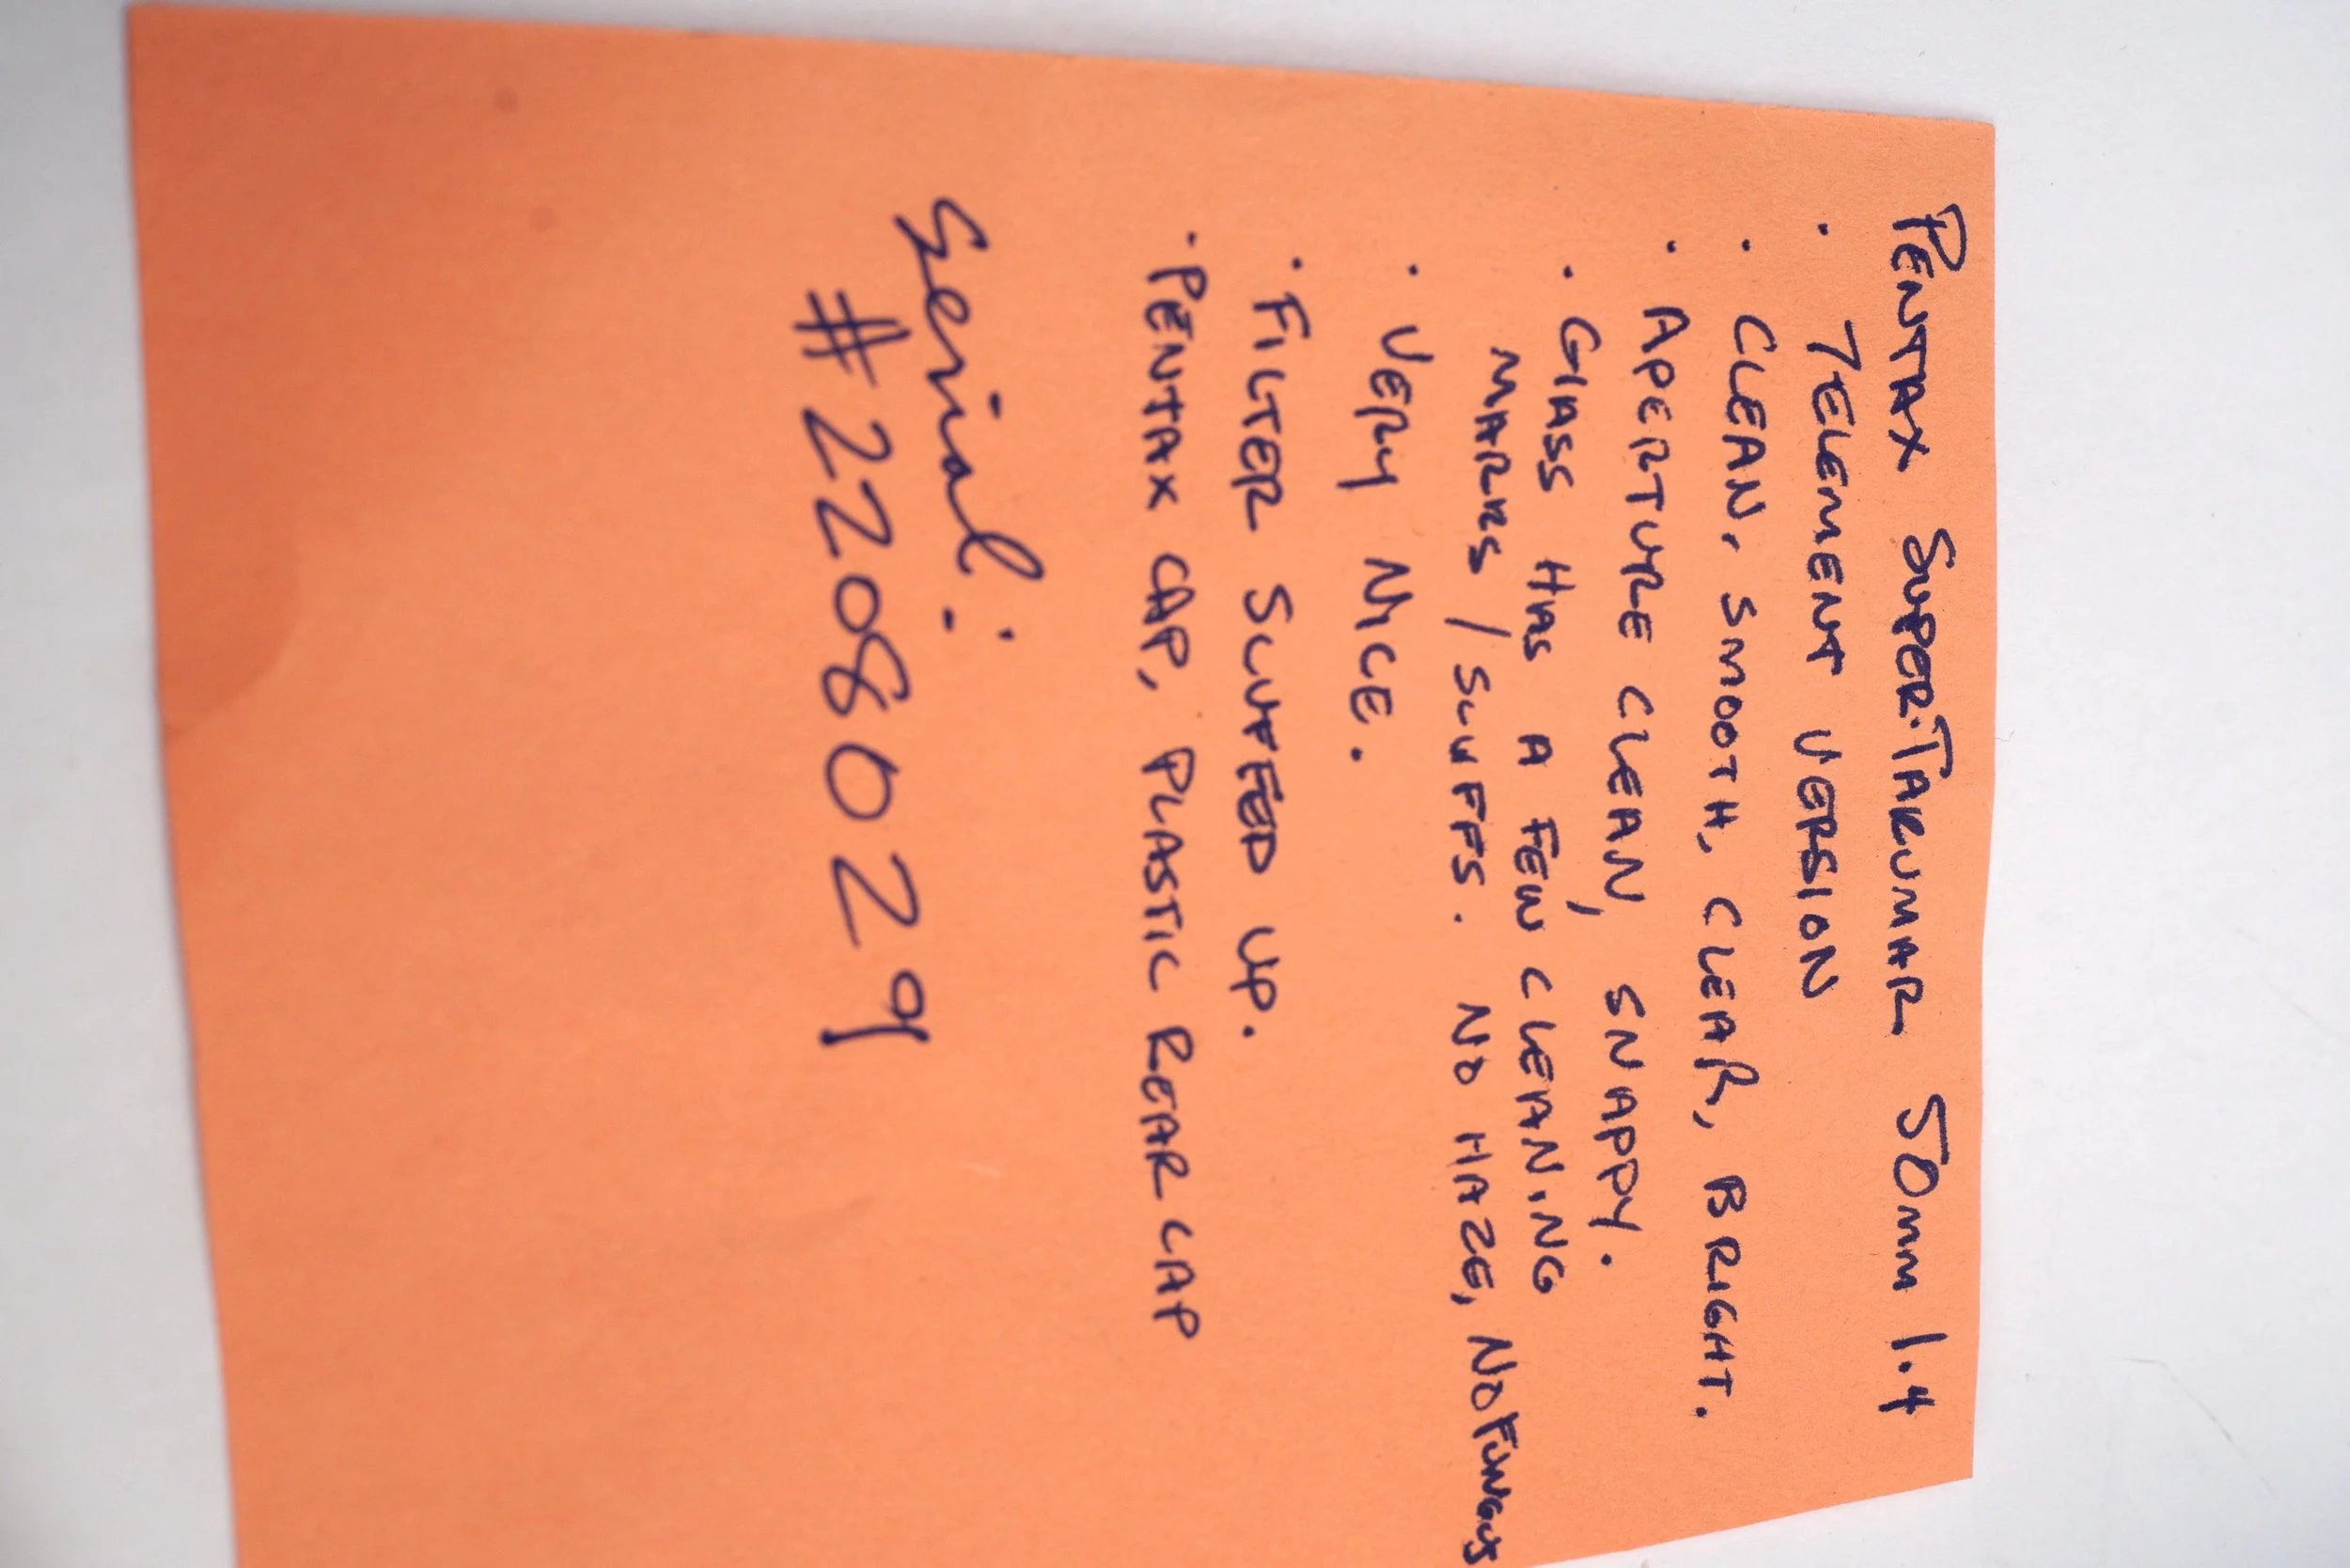 PENTAX SUPER-TAKUMAR 50mm 1.4
· 7ELEMENT VERSION
· CLEAN, SMOOTH, CLEAR, BRIGHT.
· APERTURE CLEAN, SNAPPY.
· GLASS HAS A FEW CLEANING
MARKS / SCUFFS. NO HAZE, NO FUNGUS
· VERY NICE.
· FILTER SCUFFED UP.
· PENTAX CAP, PLASTIC REAR CAP
Serial:
#2208029